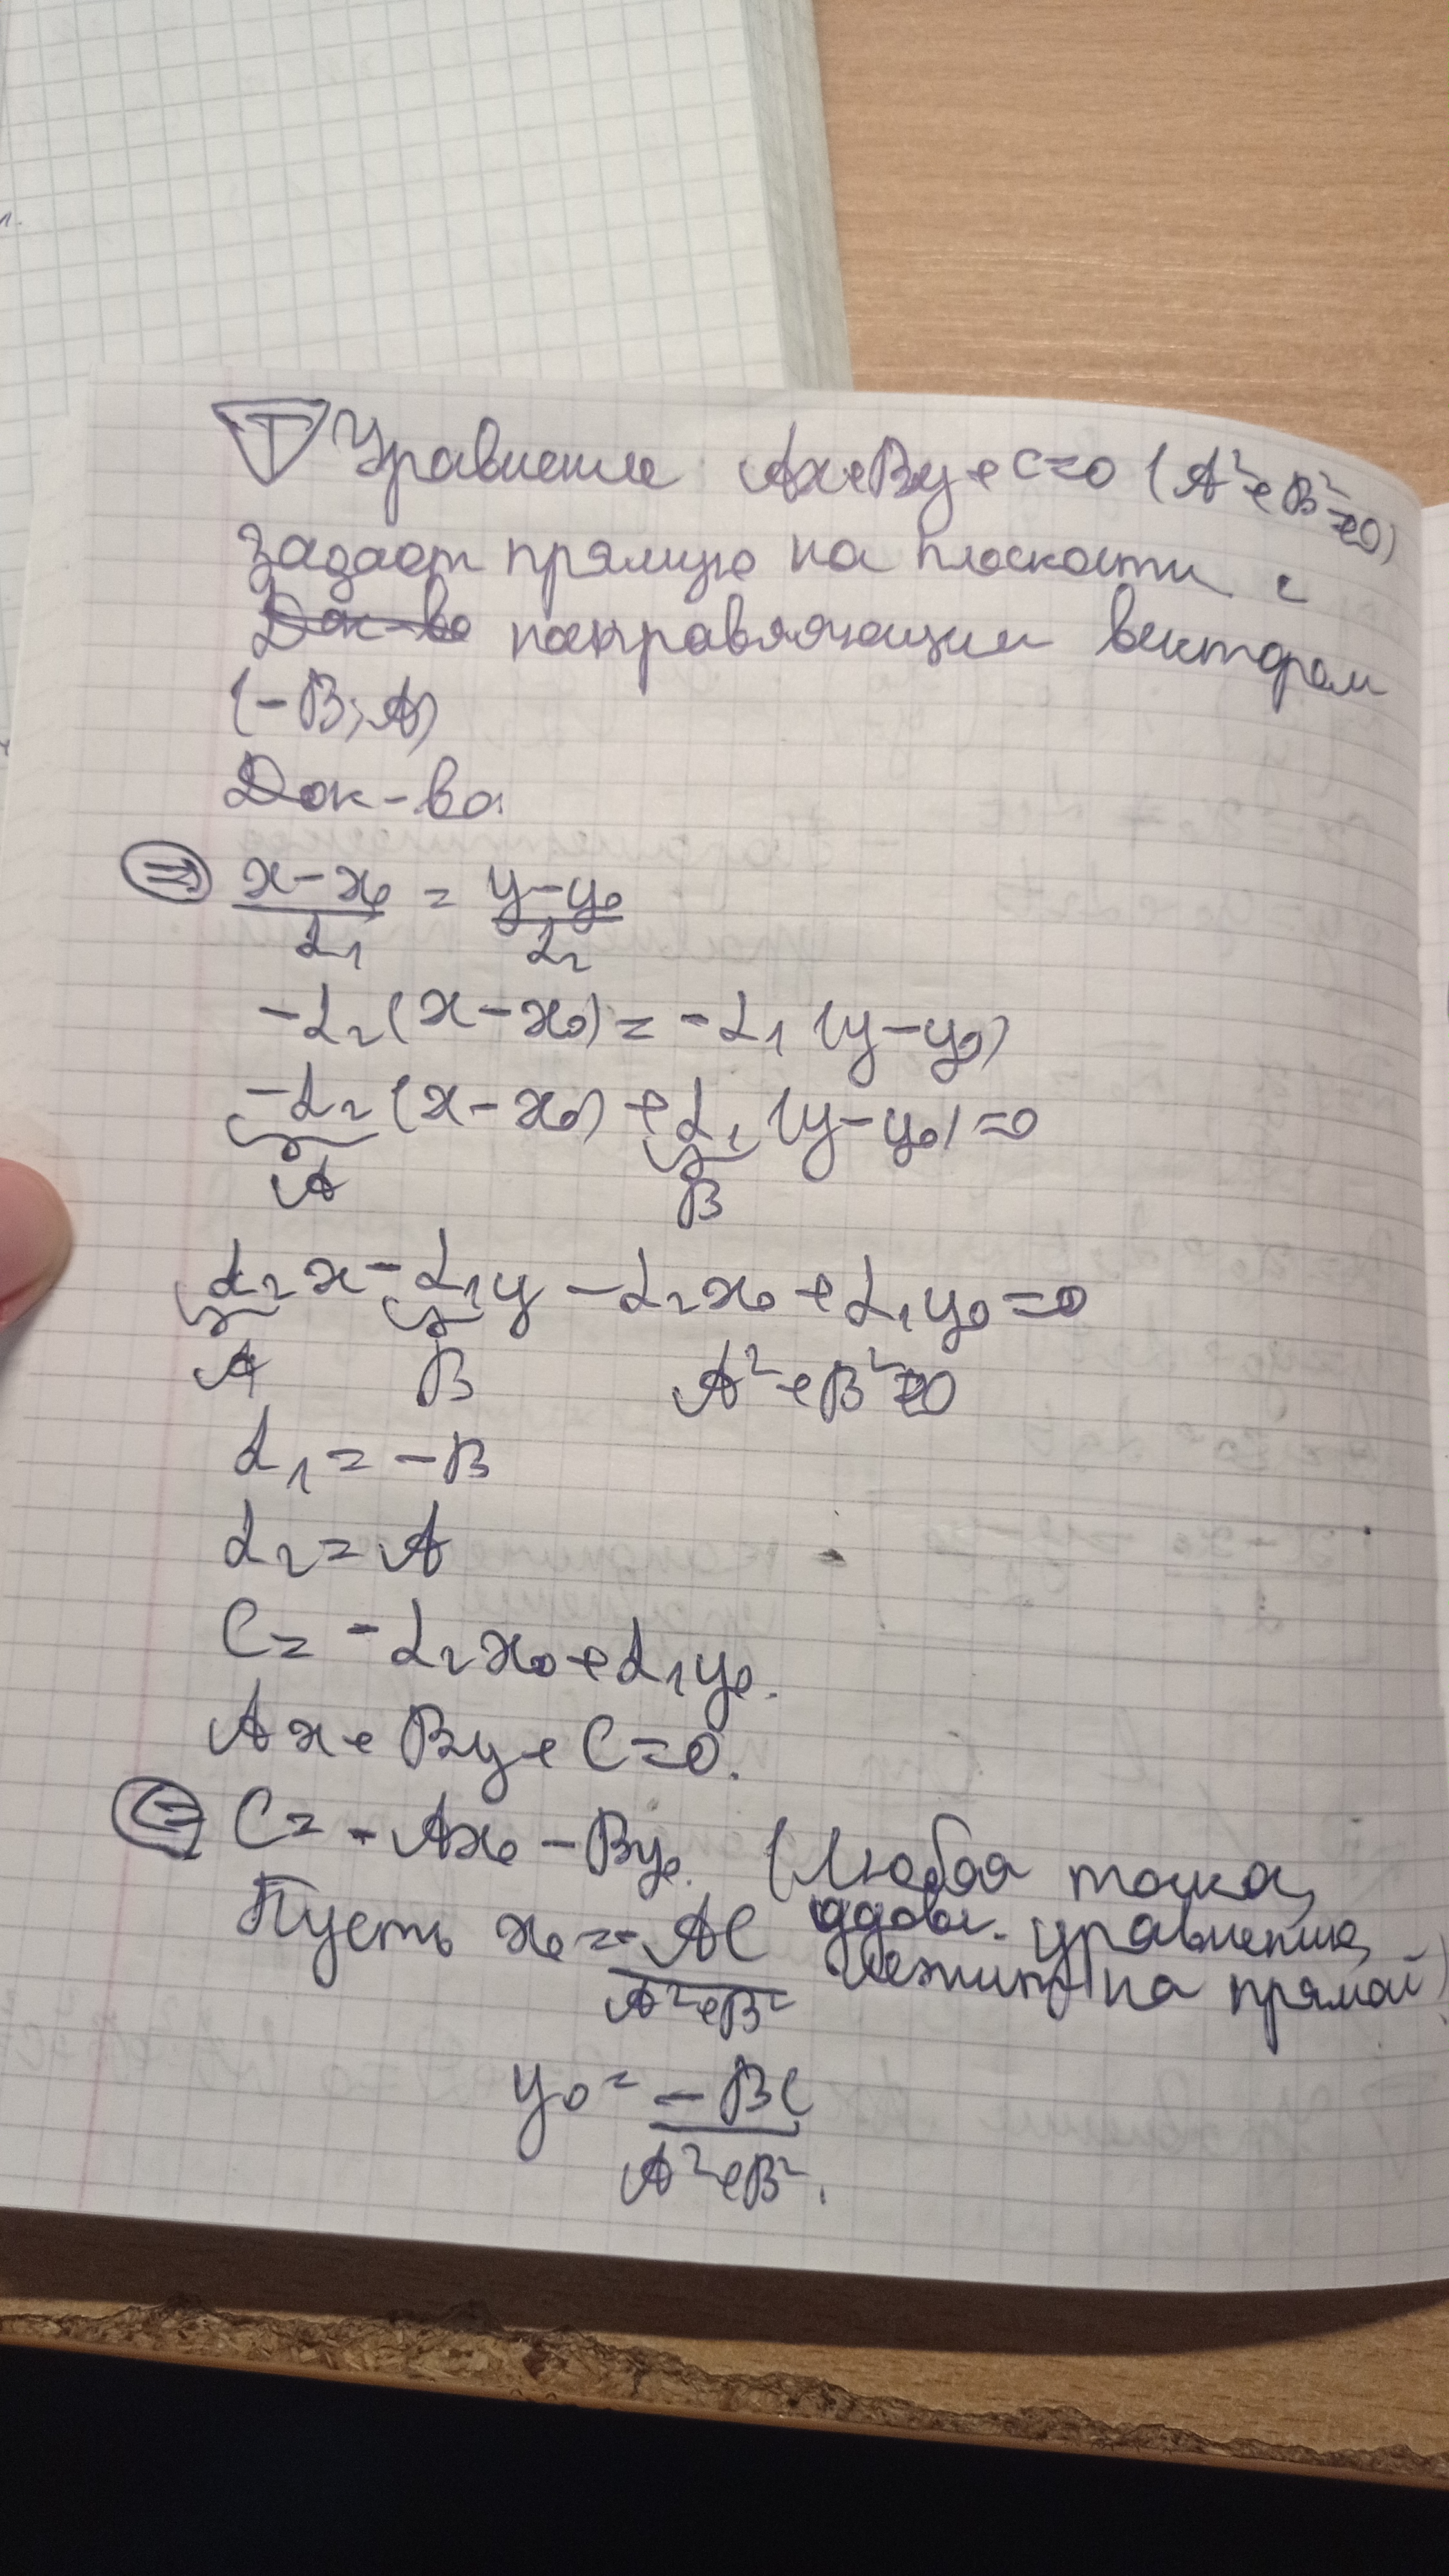 Т Уравнение Ax+By+C=0 (A²+B²≠0)
задает прямую на плоскости с
Док-во направляющим вектором
(-B; A)
Док-во:
⇒ (x-x₀)/α₁ = (y-y₀)/α₂
-α₂(x-x₀) = -α₁(y-y₀)
-α₂(x-x₀) + α₁(y-y₀)=0
A B
α₂x - α₁y - α₂x₀ + α₁y₀ = 0
A B A²+B²≠0
α₁ = -B
α₂ = A
C = -α₂x₀ + α₁y₀.
Ax + By + C = 0.
⇐ C = -Ax₀ - By₀. (Любая точка,
Пусть x₀ = -AC/(A²+B²) удовл. уравнению,
лежит на прямой)
y₀ = -BC/(A²+B²).